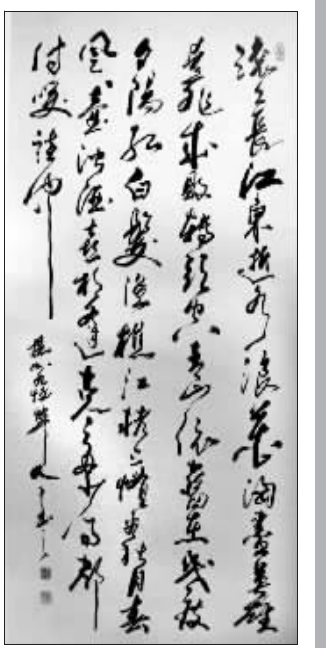 滚滚長江東逝水浪花淘盡英雄
是非成敗轉頭空青山依舊在幾度
夕陽紅白髮漁樵江渚上慣看秋月春
風一壺濁酒喜相逢古今多少事都
付笑談中